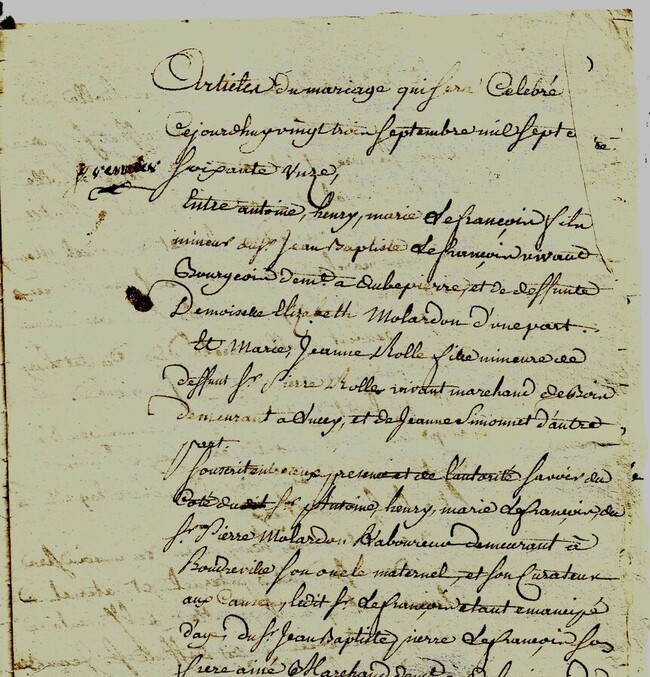 Articles du mariage qui sera Celebré
Cejourdhuy vingt trois septembre mil sept c
premier soixante unze,
Entre antoine, henry, marie Lefrançois fils
mineur du sr. Jean Baptiste Lefrançois vivant
Bourgeois demt. a Aubepierre, et de deffunte
Demoiselle Elizabeth Molardon d'une part.
Et Marie, Jeanne Rolle fille mineure de
deffunt sr. Pierre Rolle vivant marchand de Bois
demeurant a Lucey, et de Jeanne Simonnet d'autre
part
Sous et de l'autorité savoir du
Coté dudit sr. Antoine, henry, marie Lefrançois, du
sr. Pierre Molardon Laboureur demeurant à
Boudreville son oncle maternel, et son Curateur
aux Causes, ledit sr. Lefrançois etant emancipé
d'age, du sr. Jean Baptiste, pierre Lefrançois son
frere ainé Marchand demt. a